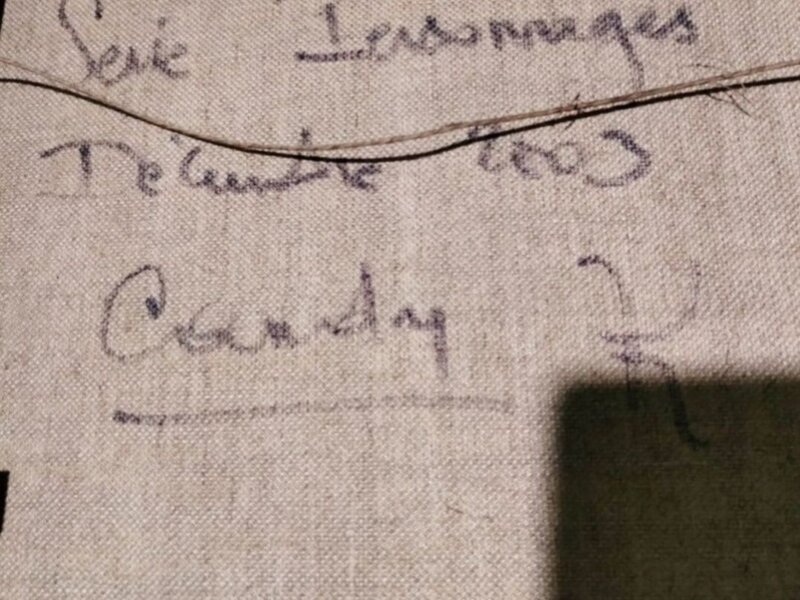 Serie Personnages
Décembre 2003
Candy